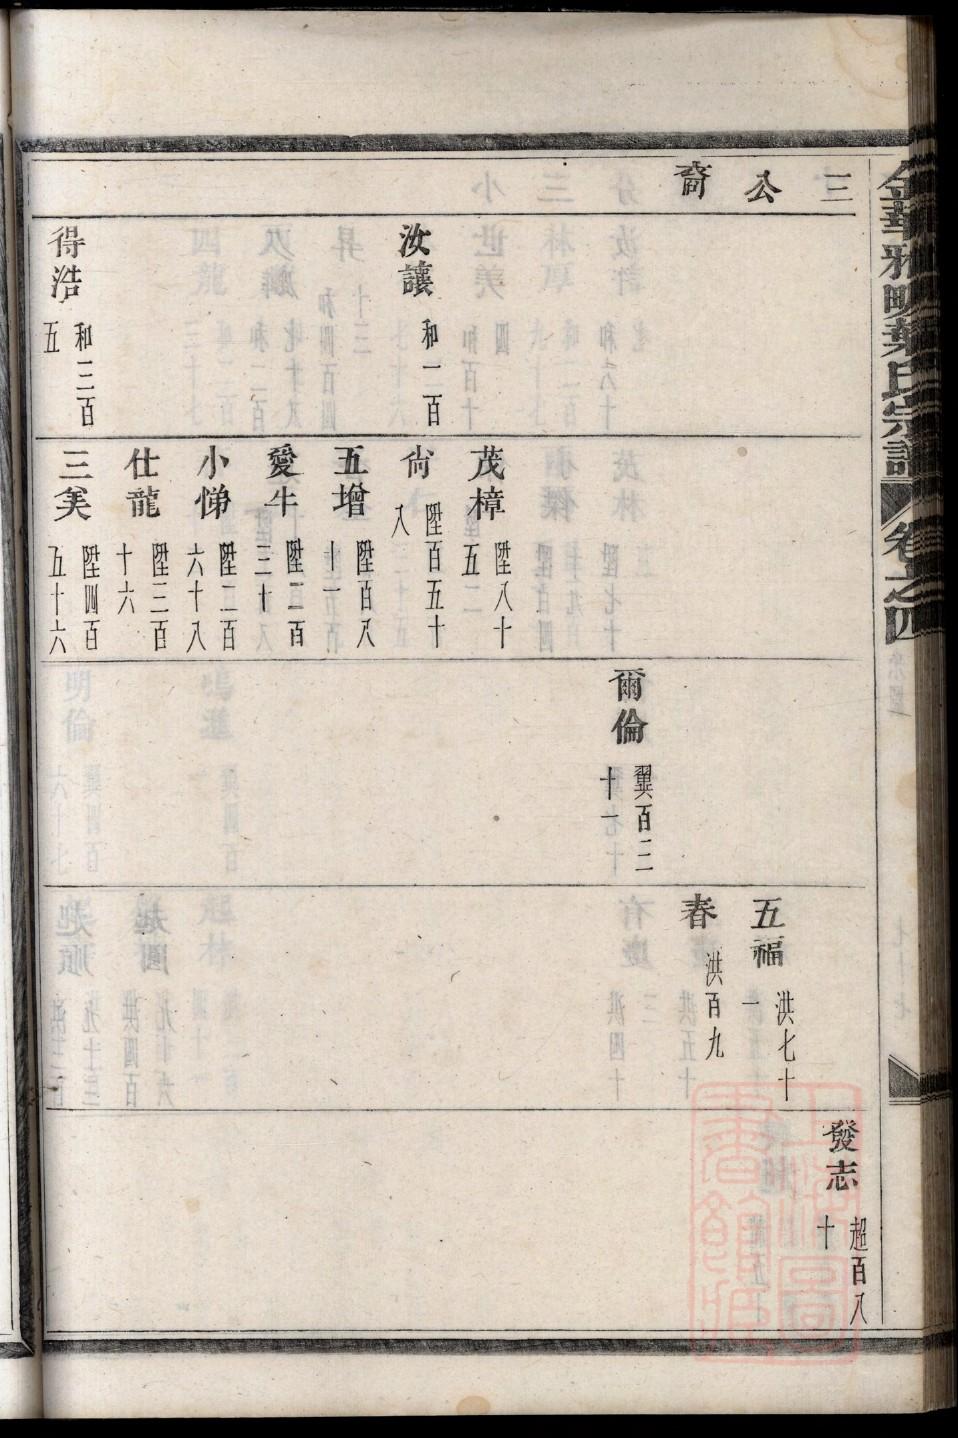 金華雅畈葉氏宗譜 卷之四
三公裔
汝讓 和一百
得浩 和三百五
茂樟 陞八十五
尙 陞百五十八
五增 陞百八十一
愛牛 陞二百三十
小悌 陞二百六十八
仕龍 陞三百十六
三 陞四百五十六
爾倫 翼百二十一
五福 洪七十一
春 洪百九
發志 超百八十